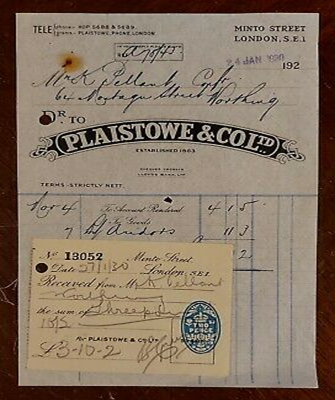 TELE phone:- HOP. 5688 & 5689.
grams:- PLAISTOWE, PHONE, LONDON.
MINTO STREET
LONDON, S.E.1
24 JAN 1930
192
Mr K Pellant
64 Montague Street Worthing
DR. TO
PLAISTOWE & CO LTD
ESTABLISHED 1863
TERMS-STRICTLY NETT.
Nov 4 To Account Rendered 4 1 5
7 To Goods
2
No 13052 Minto Street
Date 27/1/30 London. S.E.1
Received from Mr K Pellant
Worthing
the sum of Three pounds
10/2
For PLAISTOWE & CO LTD
£3-10-2
TWO
PENCE